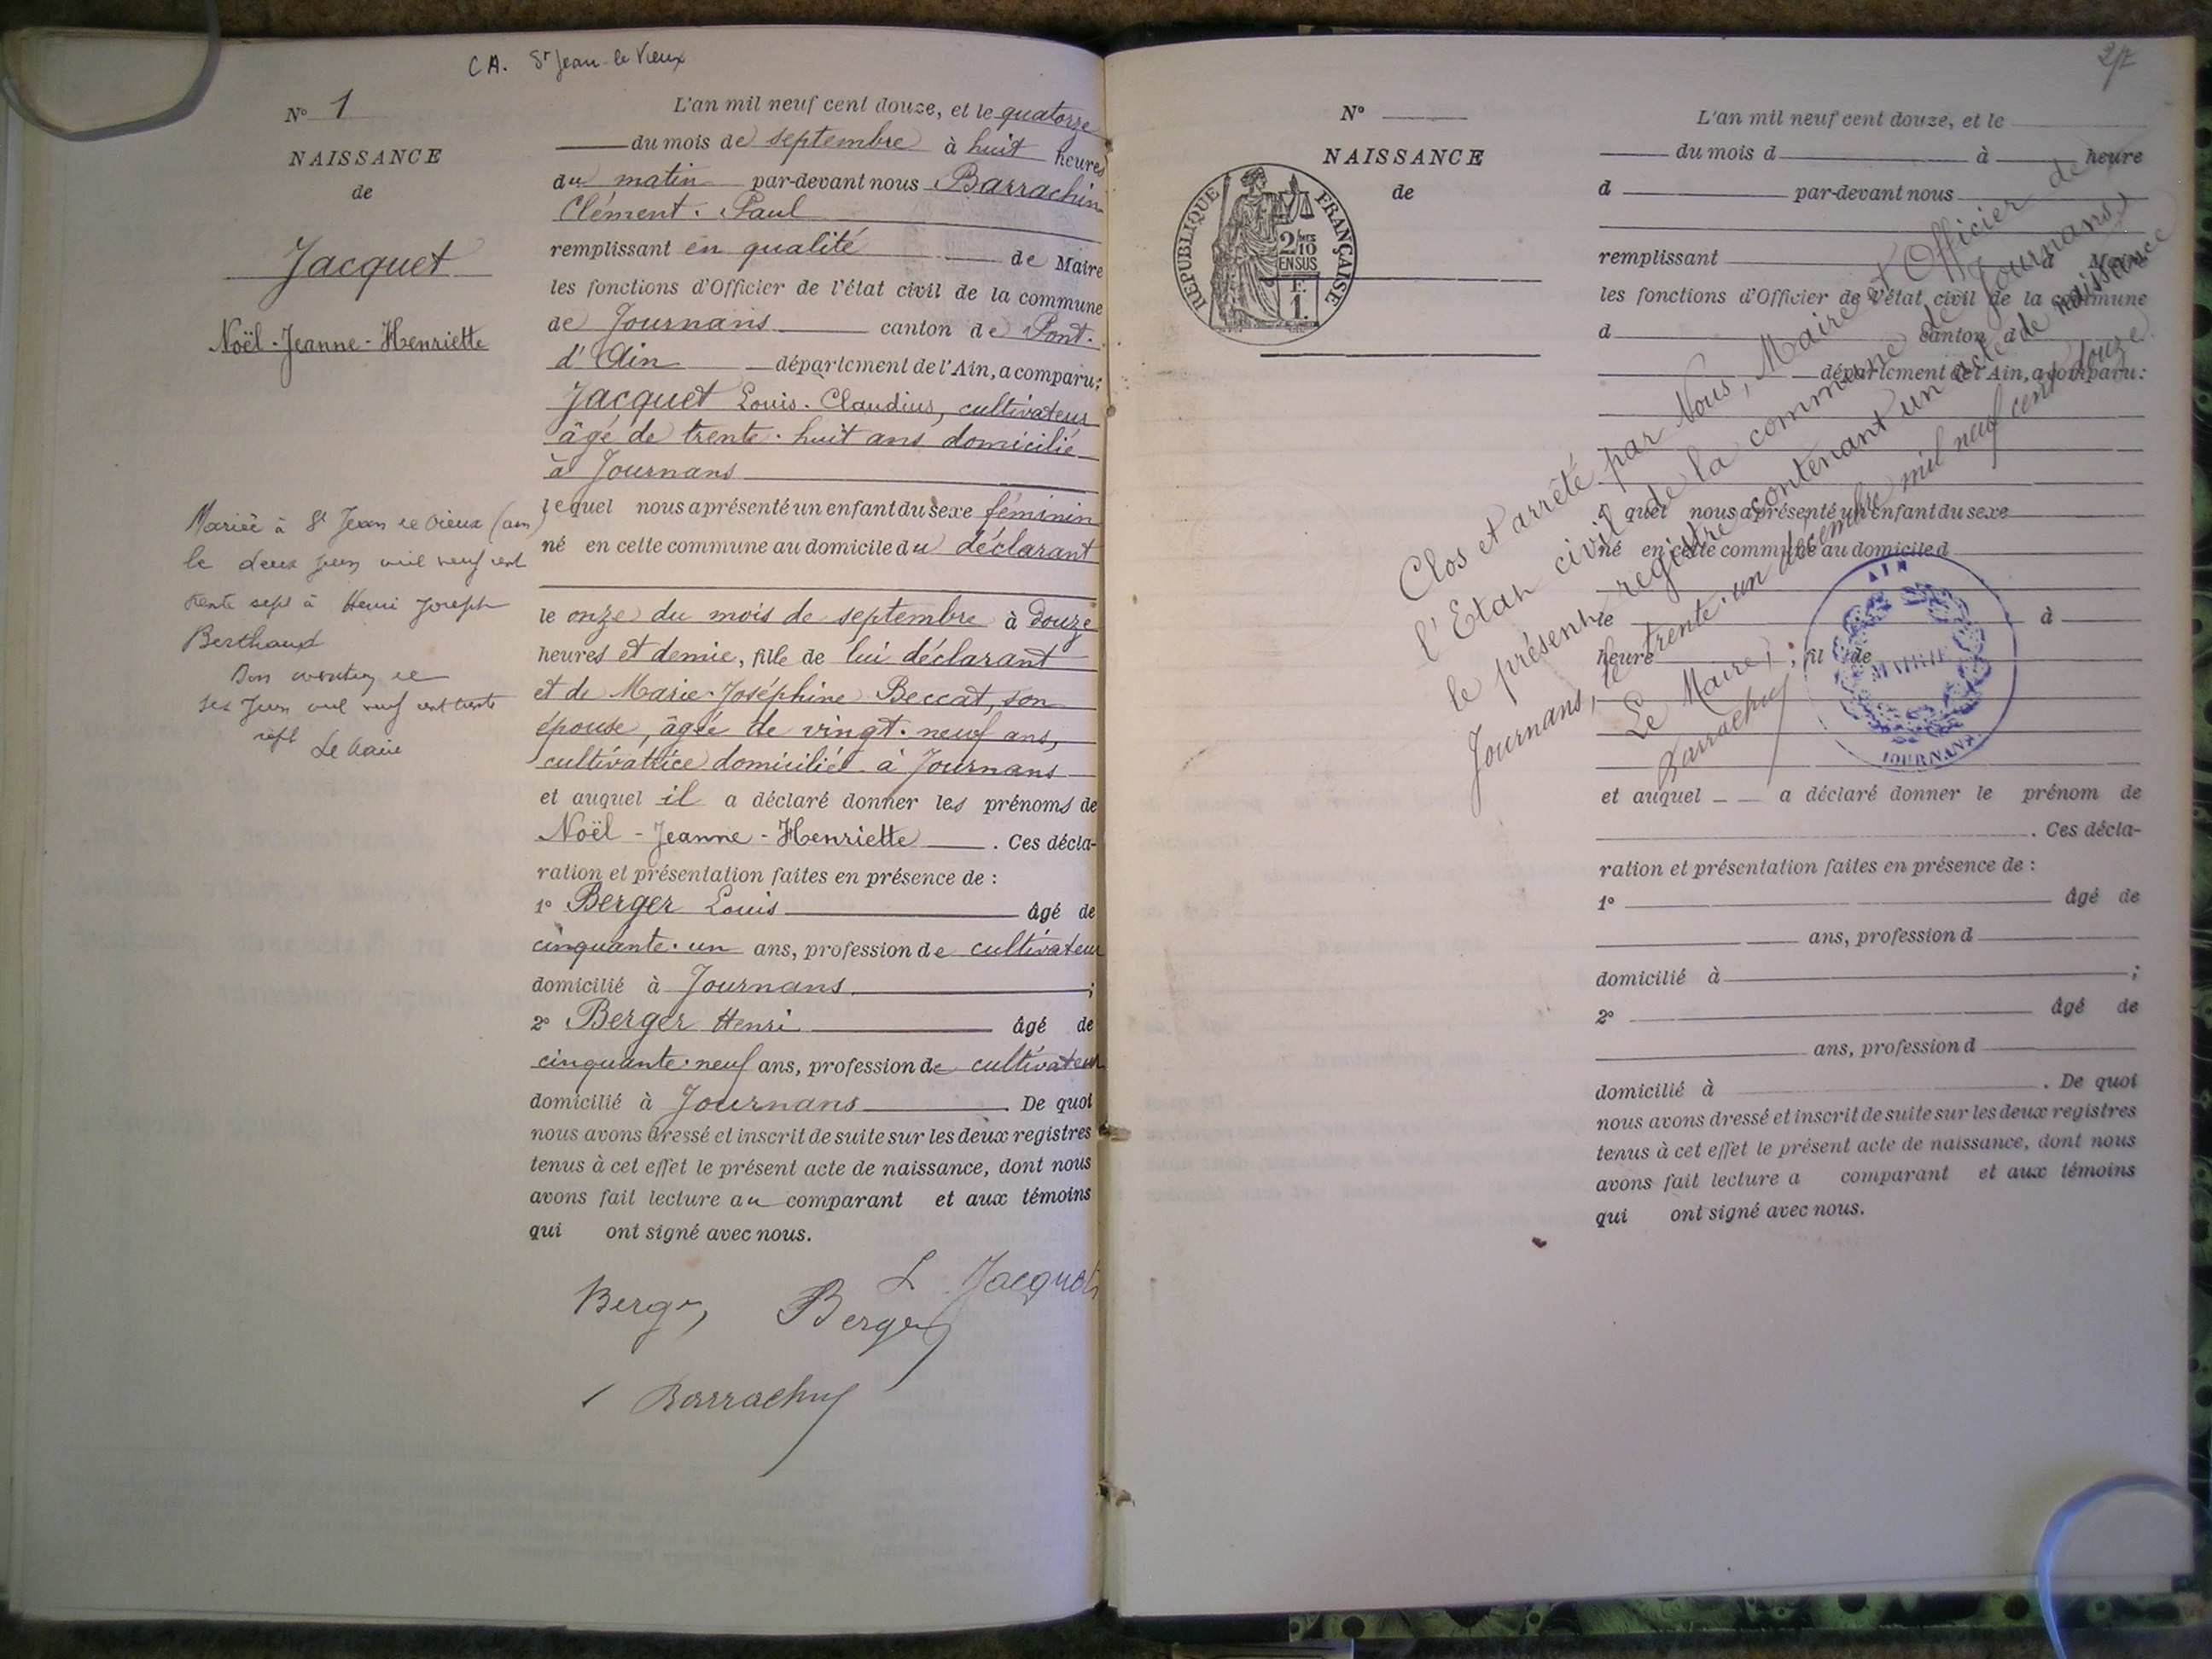 C A. St Jean-le Vieux
N° 1
NAISSANCE
de
Jacquet
Noël-Jeanne-Henriette
Mariée à St Jean le Vieux (ain)
le deux juin mil neuf cent
trente sept à Henri Joseph
Berthaud
juin mil neuf cent trente
sept Le Maire
L'an mil neuf cent douze, et le quatorze
du mois de septembre à huit heures
du matin par-devant nous Barrachin
Clément. Paul
remplissant en qualité de Maire
les fonctions d'Officier de l'état civil de la commune
de Journans canton de Pont.
d'Ain département de l'Ain, a comparu:
Jacquet Louis. Claudius, cultivateur
âgé de trente. huit ans domicilié
à Journans
lequel nous a présenté un enfant du sexe féminin
né en cette commune au domicile du déclarant
le onze du mois de septembre à douze
heures et demie, fille de lui déclarant
et de Marie-Joséphine Beccat, son
épouse, âgée de vingt. neuf ans,
cultivatrice domiciliée à Journans
et auquel il a déclaré donner les prénoms de
Noël-Jeanne-Henriette. Ces décla-
ration et présentation faites en présence de :
1° Berger Louis âgé de
cinquante. un ans, profession de cultivateur
domicilié à Journans. ;
2° Berger Henri âgé de
cinquante. neuf ans, profession de cultivateur
domicilié à Journans. De quoi
nous avons dressé et inscrit de suite sur les deux registres
tenus à cet effet le présent acte de naissance, dont nous
avons fait lecture au comparant et aux témoins
qui ont signé avec nous.
L Jacquet
Berger Berger
Barrachin
N°
NAISSANCE
de
RÉPUBLIQUE FRANÇAISE
2/10
EN SUS
1 F.
L'an mil neuf cent douze, et le
du mois d à heure
d par-devant nous
remplissant d Maire
les fonctions d'Officier de l'état civil de la commune
d canton d
département de l'Ain, a comparu:
l quel nous a présenté un enfant du sexe
né en cette commune au domicile d
le à
heure ; fil de
et auquel a déclaré donner le prénom de
. Ces décla-
ration et présentation faites en présence de :
1° âgé de
ans, profession d
domicilié à ;
2° âgé de
ans, profession d
domicilié à . De quoi
nous avons dressé et inscrit de suite sur les deux registres
tenus à cet effet le présent acte de naissance, dont nous
avons fait lecture a comparant et aux témoins
qui ont signé avec nous.
Clos et arrêté par Nous, Maire et Officier de
l'Etat civil de la commune de Journans,
le présent registre contenant un acte de naissance
Journans, le trente. un décembre mil neuf cent douze
Le Maire,
Barrachin
AIN
MAIRIE
JOURNANS